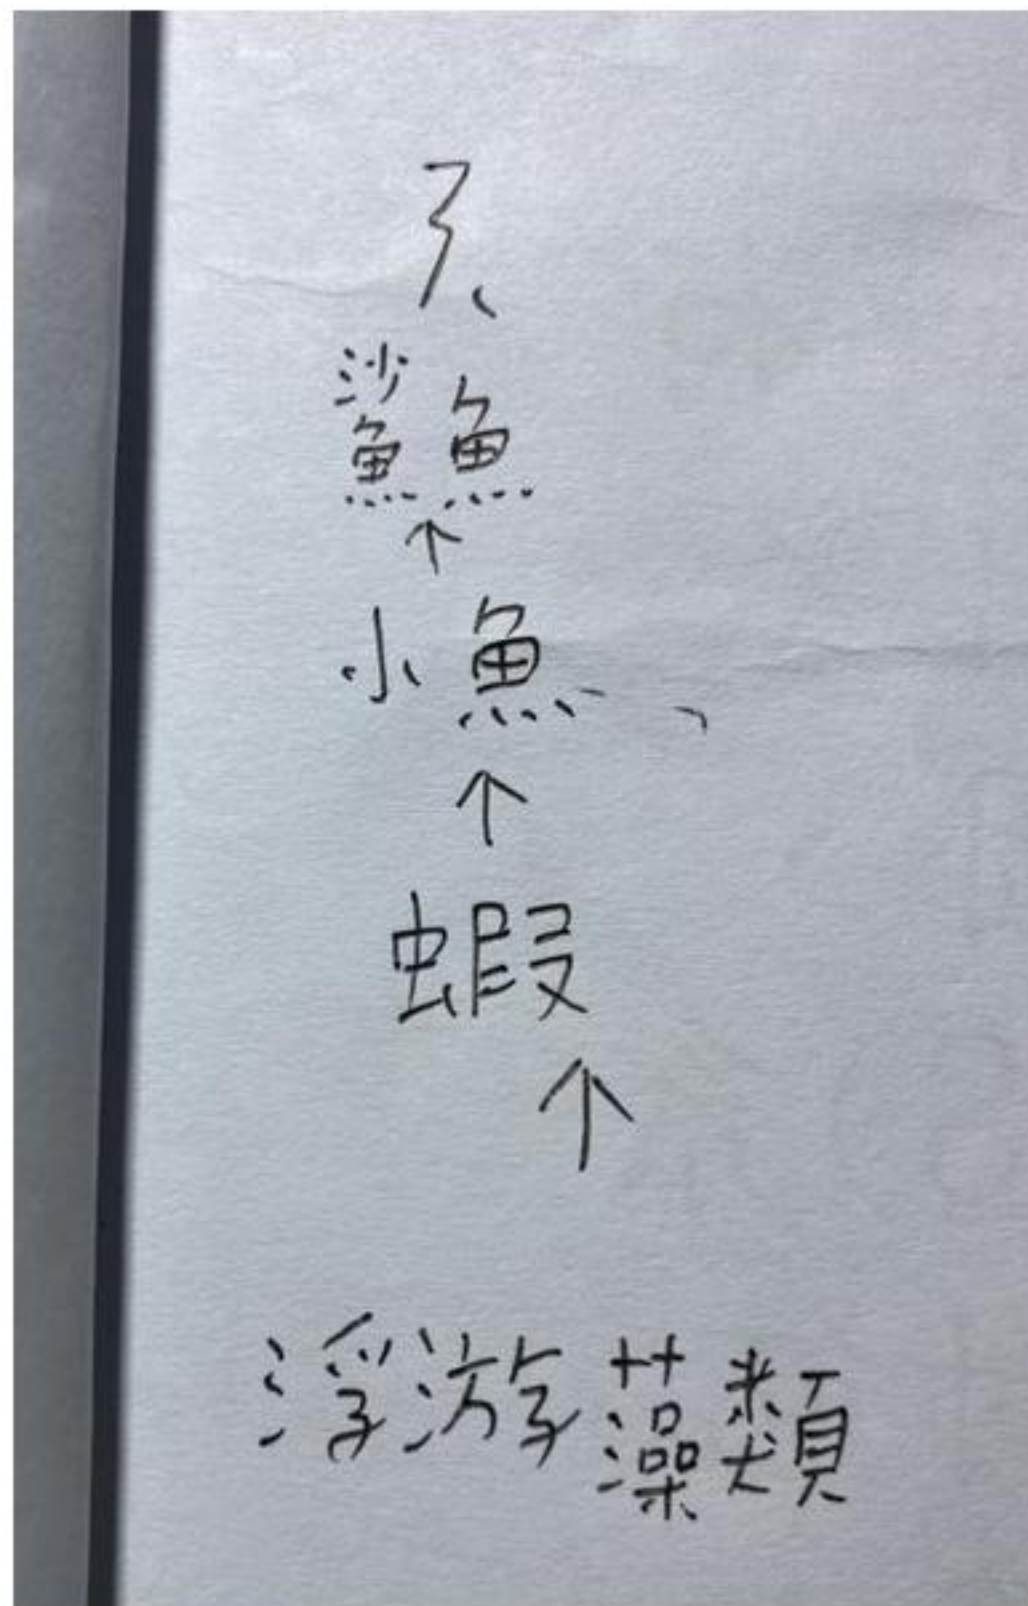 鯊魚
↑
小魚
↑
蝦
↑
浮游藻類